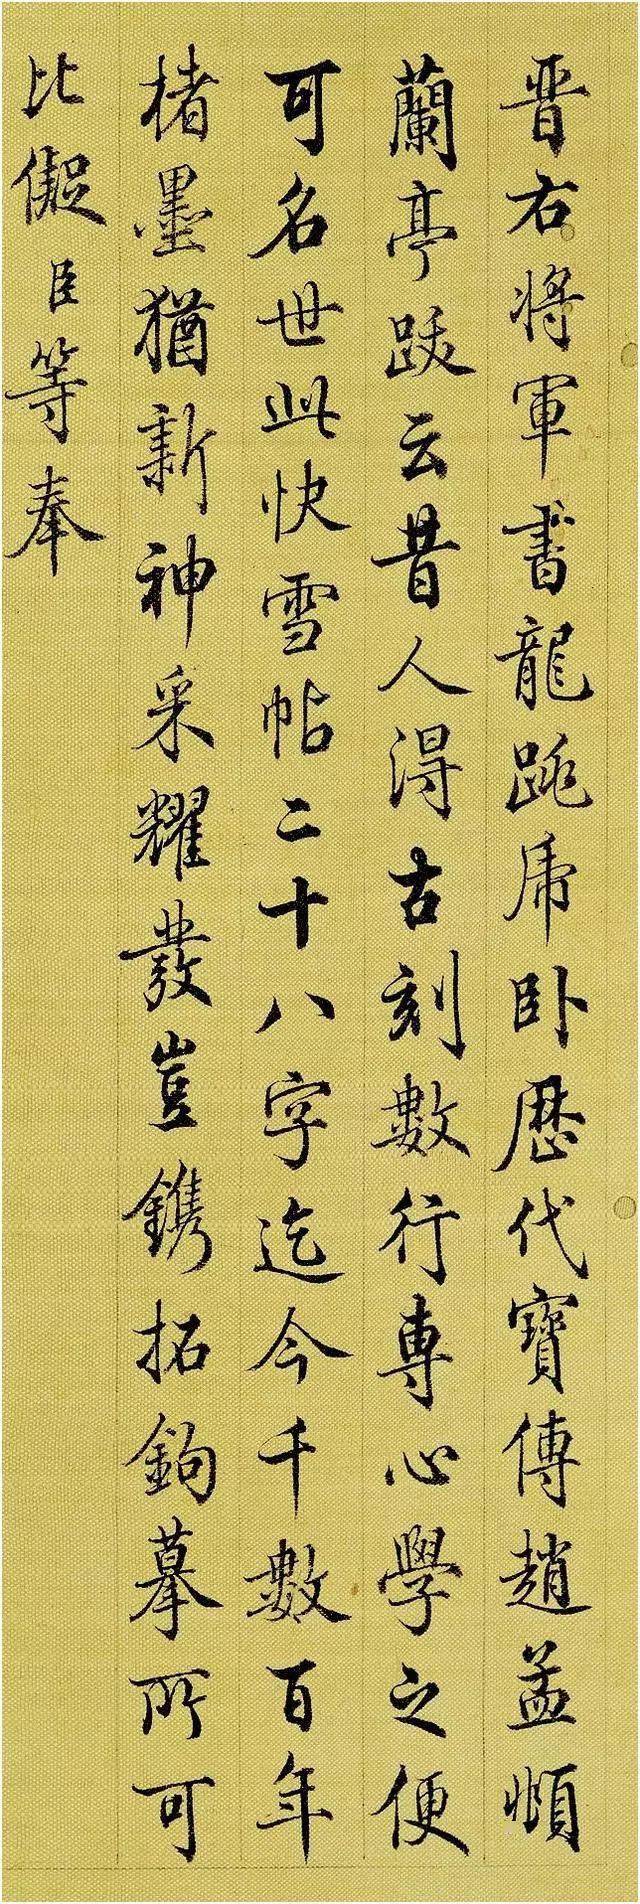 晋右將軍書龍跳虎卧歷代寶傳趙孟頫
蘭亭跋云昔人得古刻數行專心學之便
可名世此快雪帖二十八字迄今千數百年
楮墨猶新神采耀發豈鐫拓鉤摹所可
比儗臣等奉